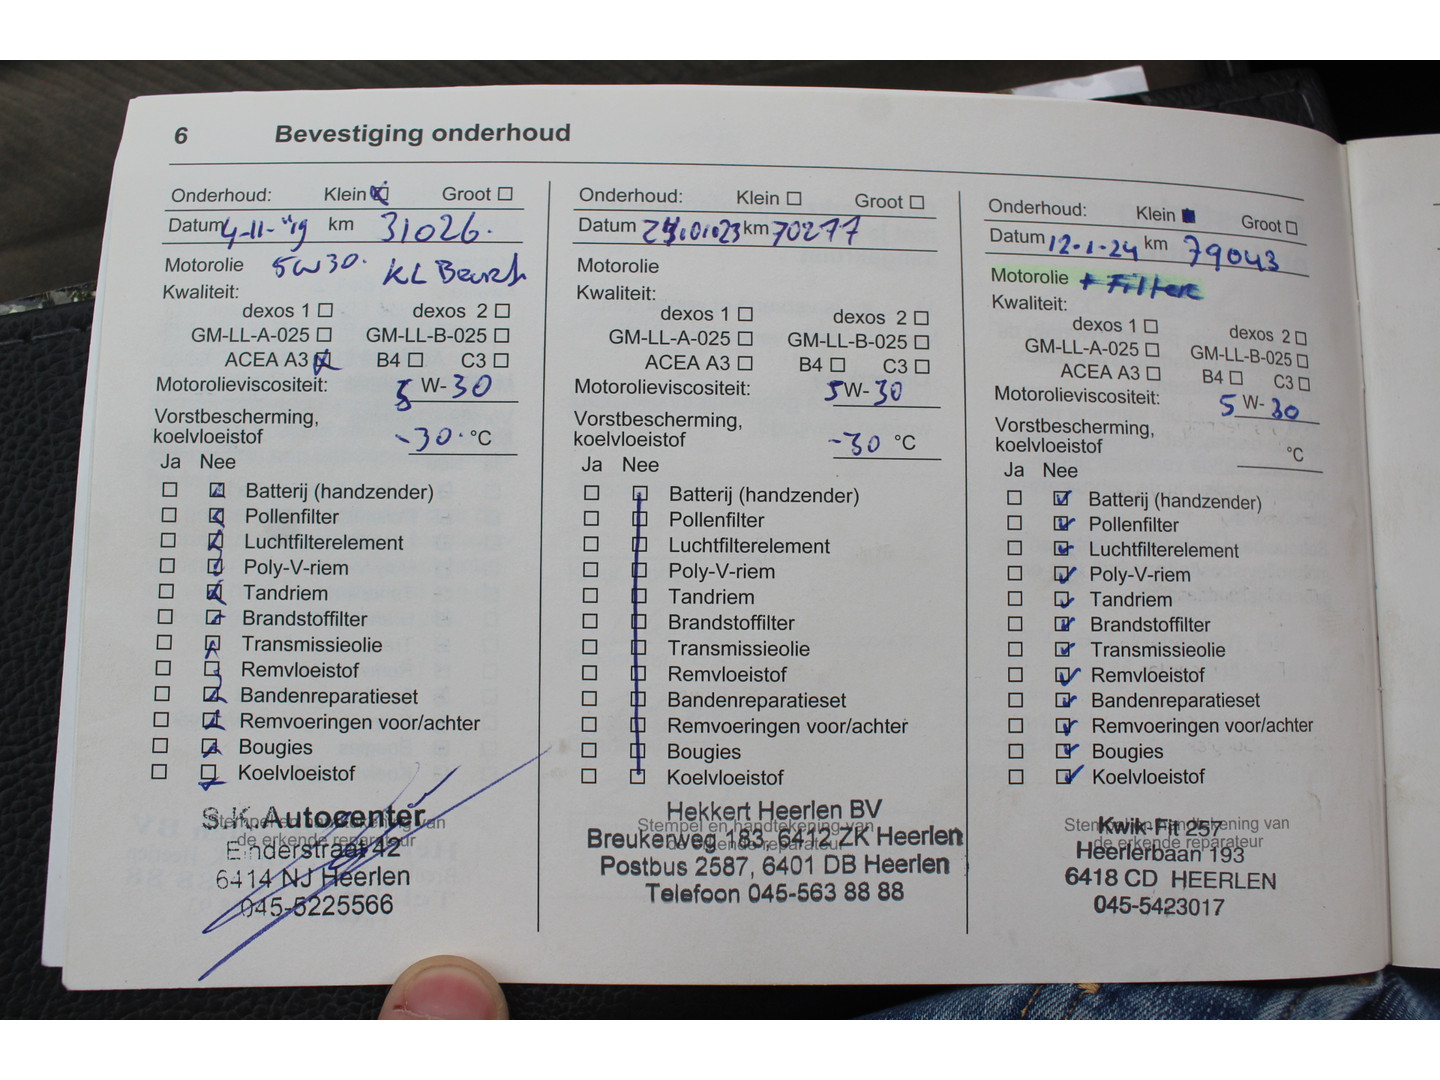 6 Bevestiging onderhoud
Onderhoud: Klein Groot
Datum 4-11-'19 km 31026.
Motorolie 5W30. KL Beurt
Kwaliteit:
dexos 1 dexos 2
GM-LL-A-025 GM-LL-B-025
ACEA A3 B4 C3
Motorolieviscositeit: 5 W- 30
Vorstbescherming,
koelvloeistof -30. °C
Ja Nee
Batterij (handzender)
Pollenfilter
Luchtfilterelement
Poly-V-riem
Tandriem
Brandstoffilter
Transmissieolie
Remvloeistof
Bandenreparatieset
Remvoeringen voor/achter
Bougies
Koelvloeistof
Stempel en handtekening van
de erkende reparateur
S.K. Autocenter
Einderstraat 42
6414 NJ Heerlen
045-5225566
Onderhoud: Klein Groot
Datum km 70277
Motorolie
Kwaliteit:
dexos 1 dexos 2
GM-LL-A-025 GM-LL-B-025
ACEA A3 B4 C3
Motorolieviscositeit: 5 W- 30
Vorstbescherming,
koelvloeistof -30 °C
Ja Nee
Batterij (handzender)
Pollenfilter
Luchtfilterelement
Poly-V-riem
Tandriem
Brandstoffilter
Transmissieolie
Remvloeistof
Bandenreparatieset
Remvoeringen voor/achter
Bougies
Koelvloeistof
Stempel en handtekening van
de erkende reparateur
Hekkert Heerlen BV
Breukerweg 183, 6412 ZK Heerlen
Postbus 2587, 6401 DB Heerlen
Telefoon 045-563 88 88
Onderhoud: Klein Groot
Datum 12-1-24 km 79043
Motorolie + Filter
Kwaliteit:
dexos 1 dexos 2
GM-LL-A-025 GM-LL-B-025
ACEA A3 B4 C3
Motorolieviscositeit: 5 W- 30
Vorstbescherming,
koelvloeistof °C
Ja Nee
Batterij (handzender)
Pollenfilter
Luchtfilterelement
Poly-V-riem
Tandriem
Brandstoffilter
Transmissieolie
Remvloeistof
Bandenreparatieset
Remvoeringen voor/achter
Bougies
Koelvloeistof
Stempel en handtekening van
de erkende reparateur
Kwik-Fit 257
Heerlerbaan 193
6418 CD HEERLEN
045-5423017